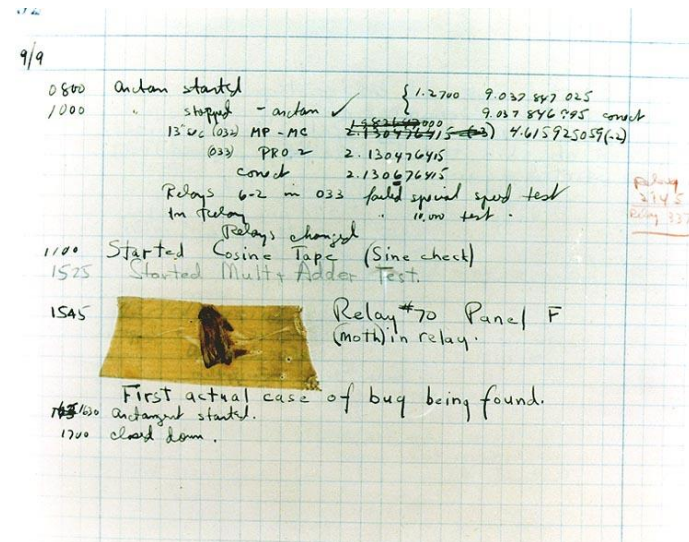 9/9
0800 Antan started
1000 " stopped - antan ✓ { 1.2700 9.037 847 025
9.037 846 995 correct
13"uc (032) MP - MC 2.130476415 (-3) 4.615925059(-2)
(033) PRO 2 2.130476415
correct 2.130676415
Relays 6-2 in 033 failed special speed test
In Relay " 10.000 test.
Relay 2145
Relay 337
Relays changed
1100 Started Cosine Tape (Sine check)
1525 Started Mult + Adder Test.
1545 Relay #70 Panel F
(moth) in relay.
First actual case of bug being found.
1630 Antangent started.
1700 closed down.